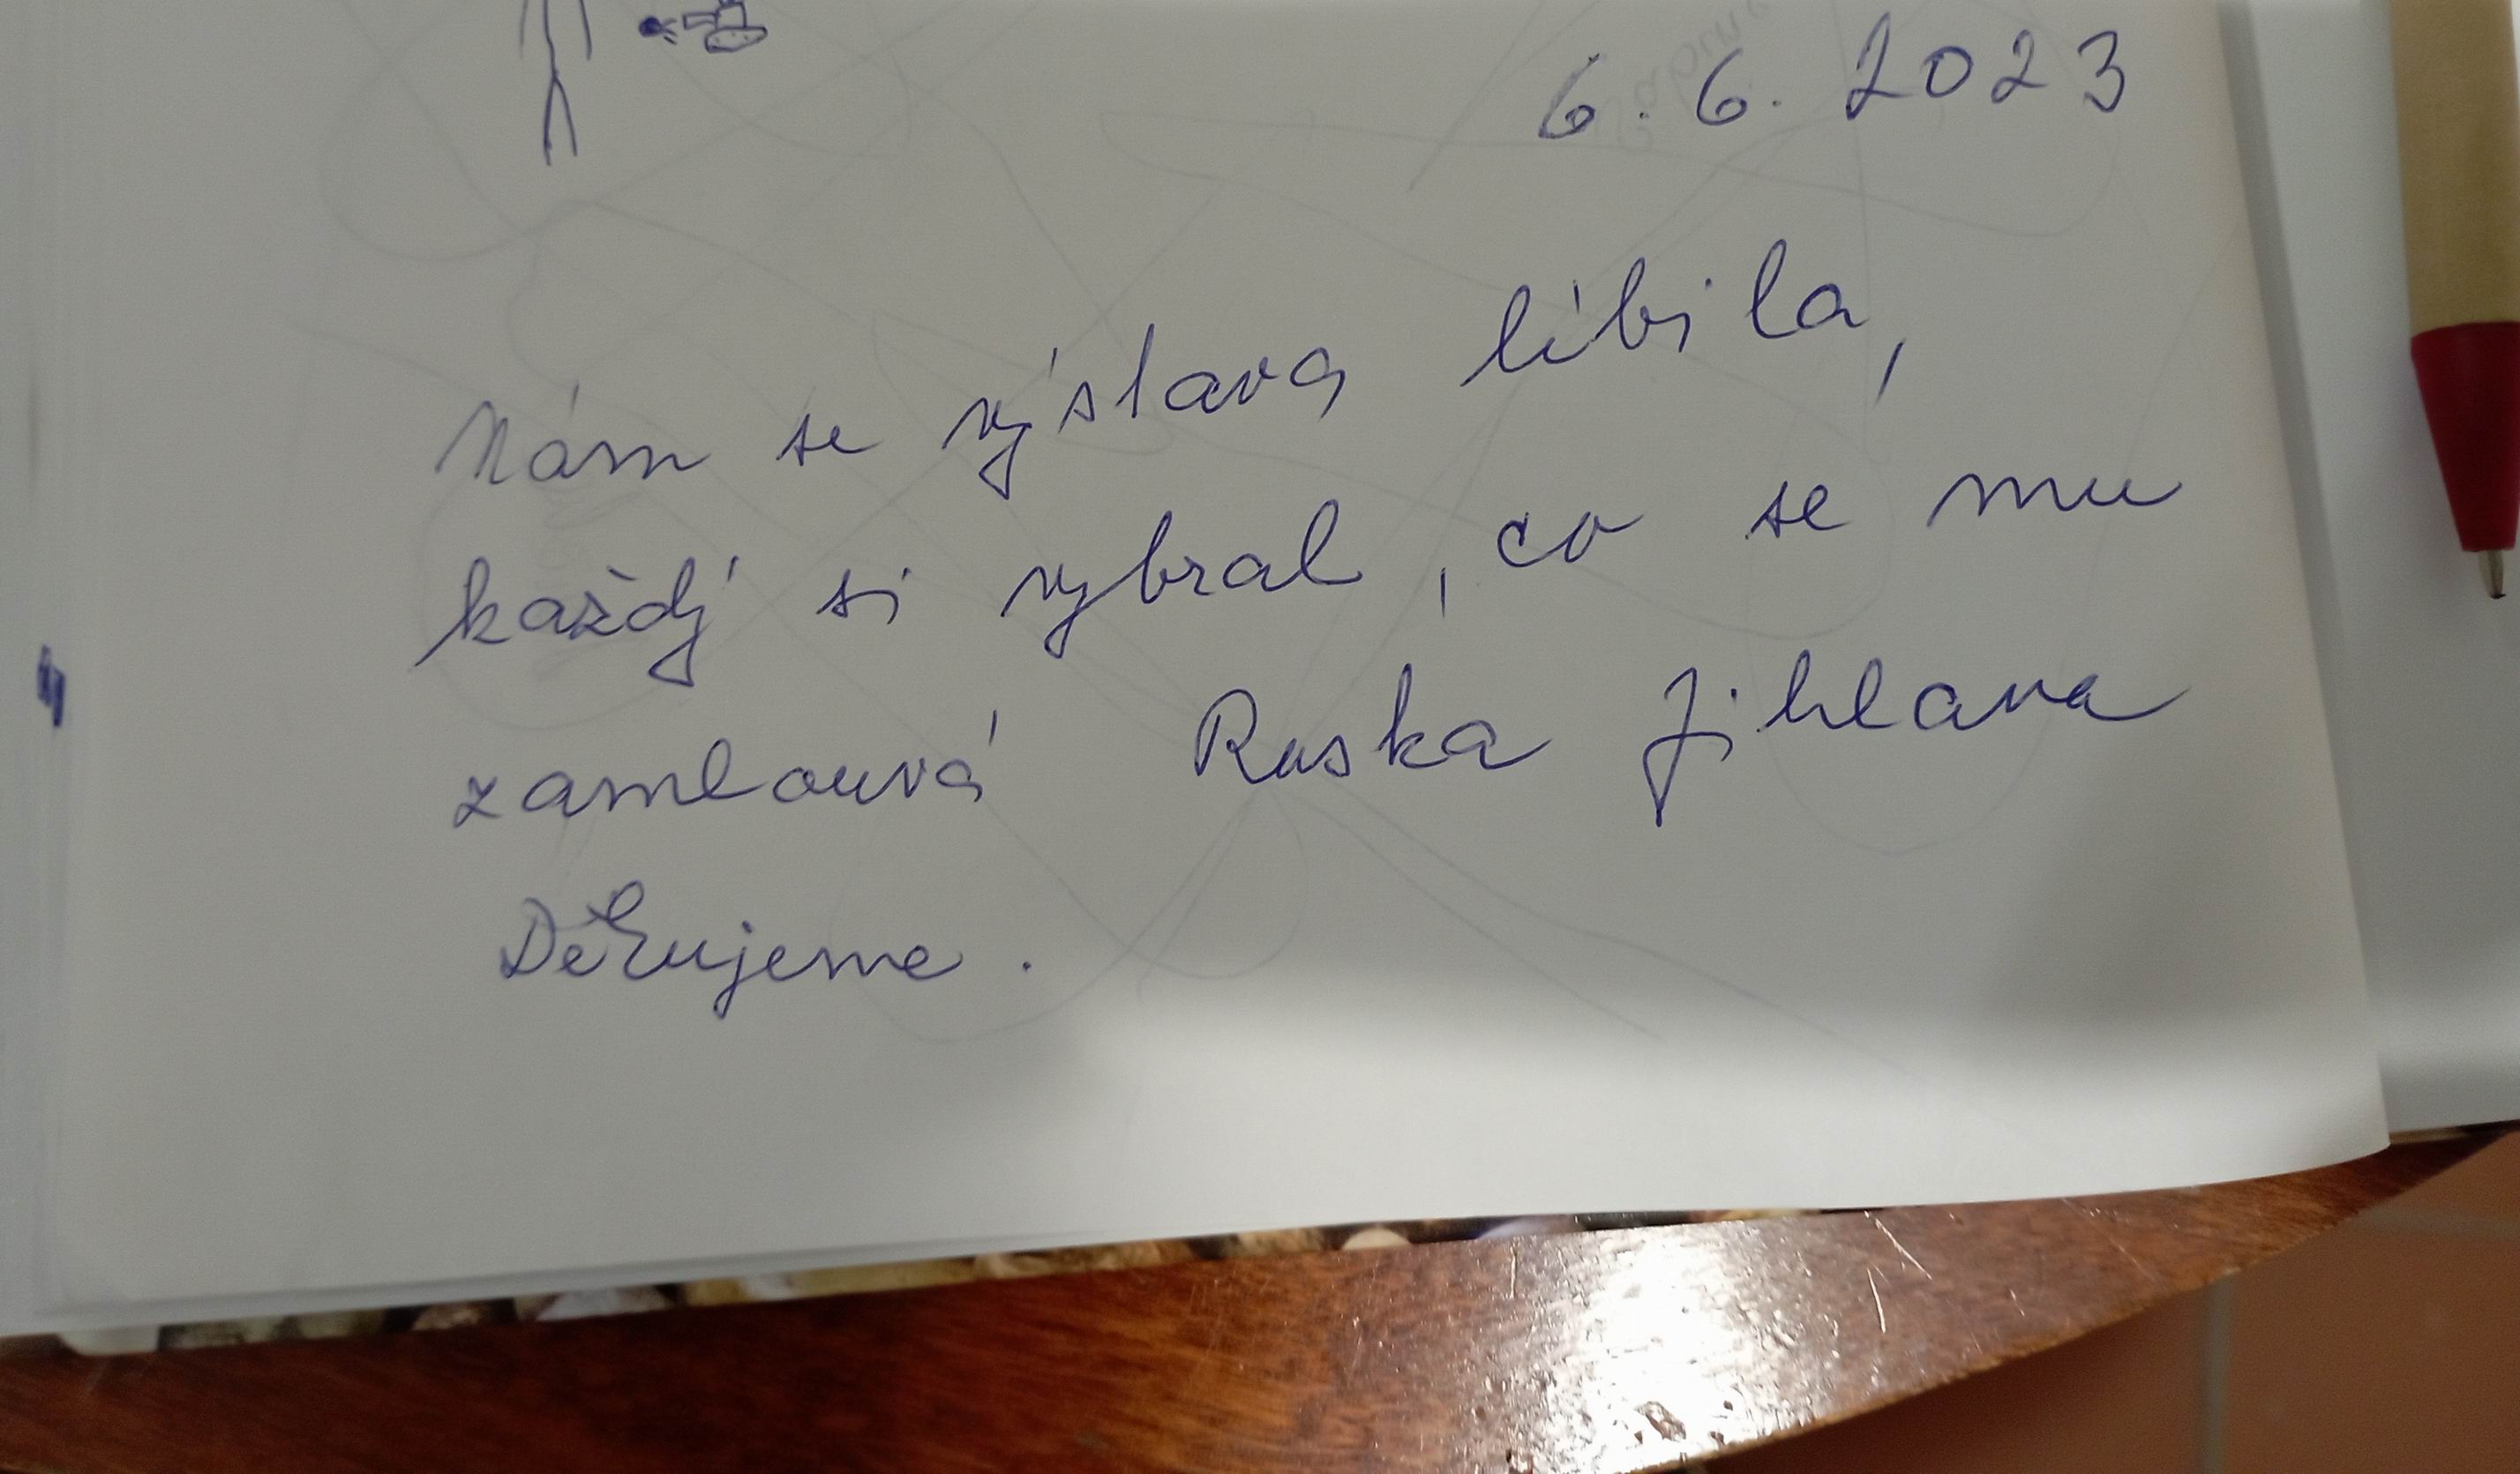 6. 6. 2023
Nám se výstava líbila,
každý si vybral, co se mu
zamlouvá Ruska Jihlava
Děkujeme.